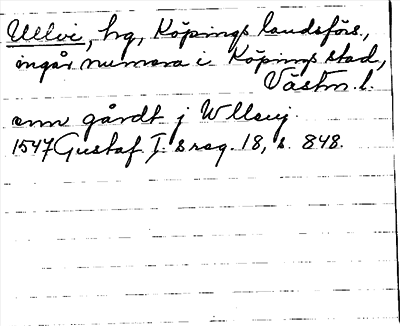 Ullvi, hg, Köpings landsförs.,
ingår numera i Köpings stad,
Västm. l.
enn gårdt j Wlluj.
1547 Gustaf I:s reg. 18, s. 848.